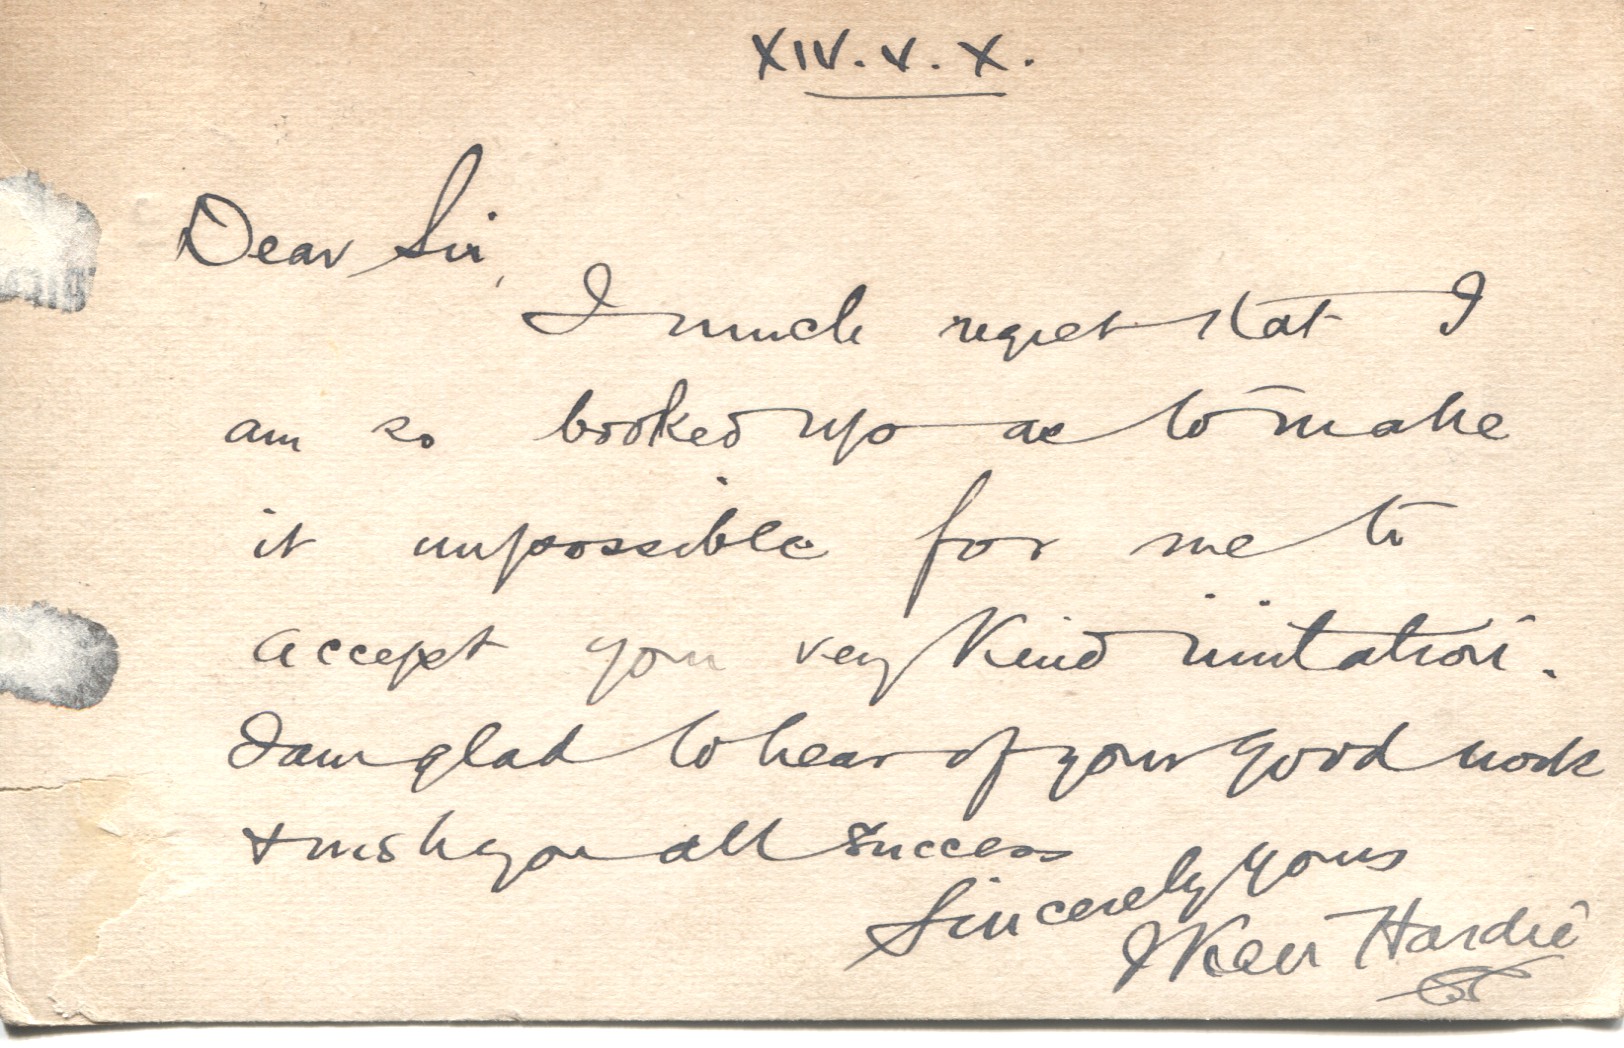 XIV. V. X.
Dear Sir,
I much regret that I
am so booked up as to make
it impossible for me to
accept your very kind invitation.
I am glad to hear of your good work
& wish you all success
Sincerely yours
J Keir Hardie